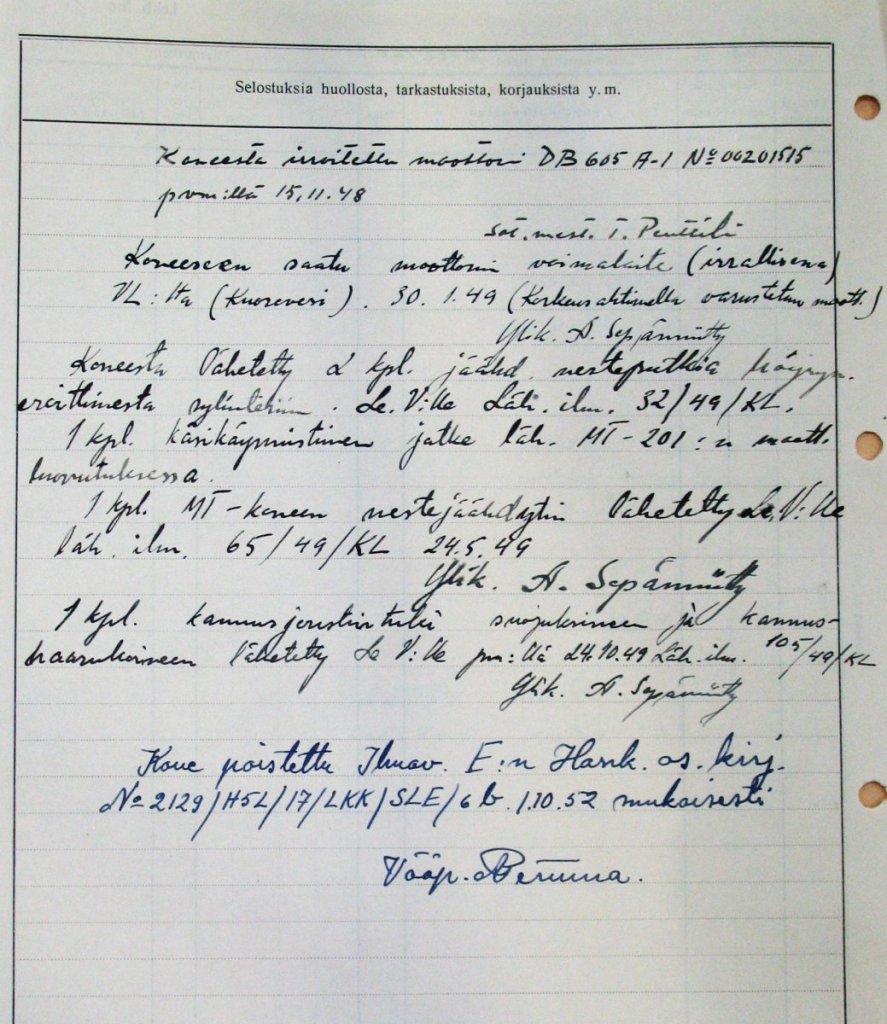 Selostuksia huollosta, tarkastuksista, korjauksista y.m.
Koneesta irroitettu moottori DB 605 A-1 № 00201515
pvm:llä 15.11.48
sot.mest. T. Penttilä
Koneeseen saatu moottorin voimalaite (irrallisena)
VL:ltä (Kuorevesi). 30.1.49 (Korkeusahtimella varustetun moott.)
Ylik. A. Sepänniitty
Koneesta lähetetty 2 kpl. jäähd. nesteputkia höyryn-
erottimesta sylinteriin. Le.V:lle Läh. ilm. 32/49/KL.
1 kpl. käsikäynnistimen jatke läh. MT-201:n moott.
luovutuksessa.
1 kpl. MT-koneen nestejäähdytin lähetetty Le.V:lle
läh. ilm. 65/49/KL 24.5.49
Ylik. A. Sepänniitty
1 kpl. kannusjoustintuki suojuksineen ja kannus-
haarukoineen lähetetty Le V:lle pm:llä 24.10.49 Läh.ilm. 105/49/KL
Ylik. A. Sepänniitty
Kone poistettu Ilmav. E:n Hank. os. kirj.
№ 2129/HSL/17/LKK/SLE/6 b. 1.10.52 mukaisesti
Vääp.